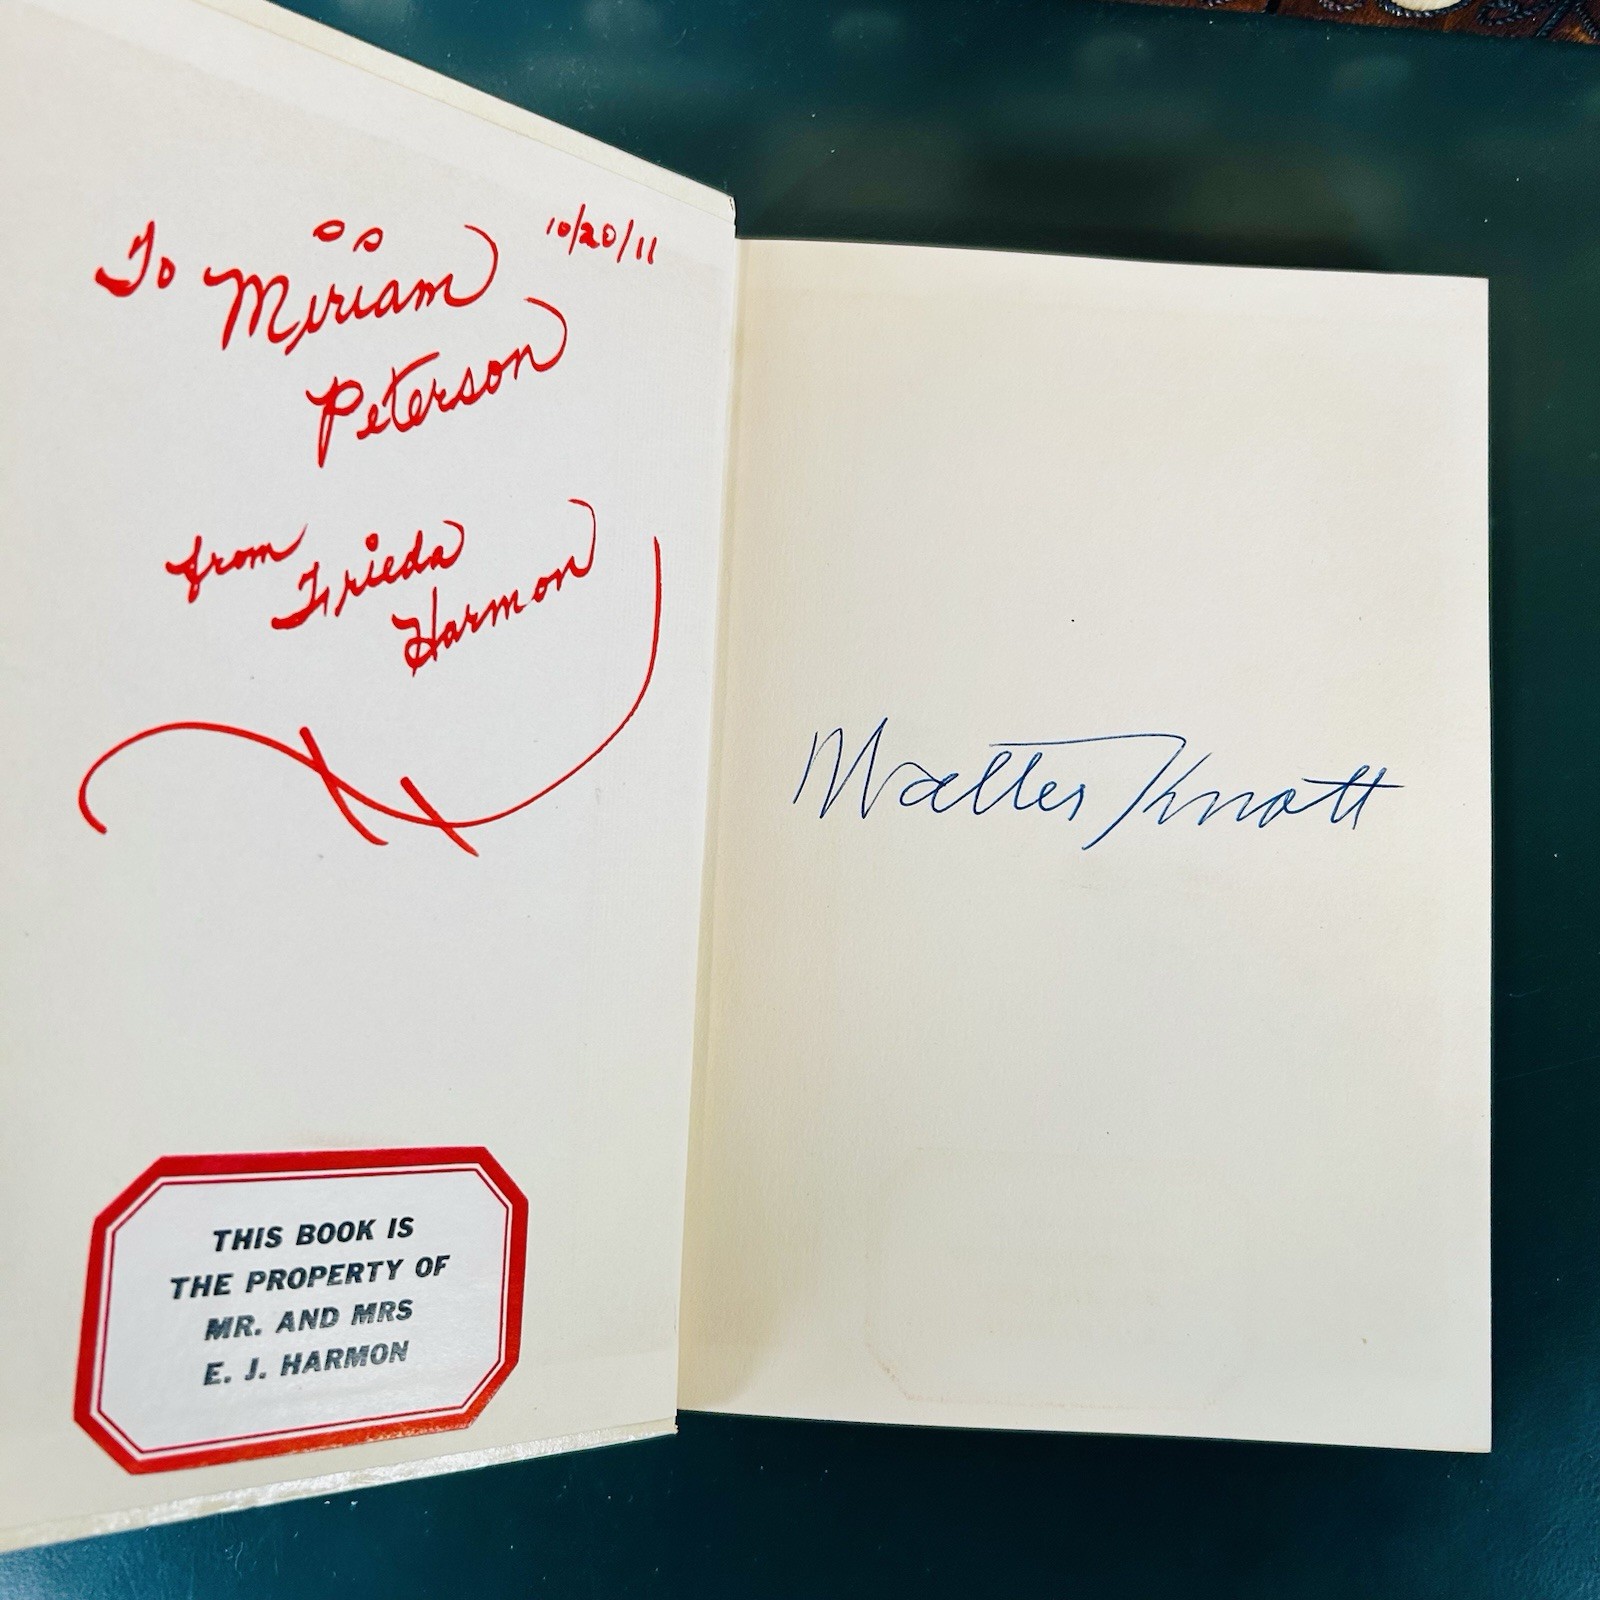 10/20/11
To Miriam
Peterson
from Frieda
Harmon
THIS BOOK IS
THE PROPERTY OF
MR. AND MRS
E. J. HARMON
Walter Knott